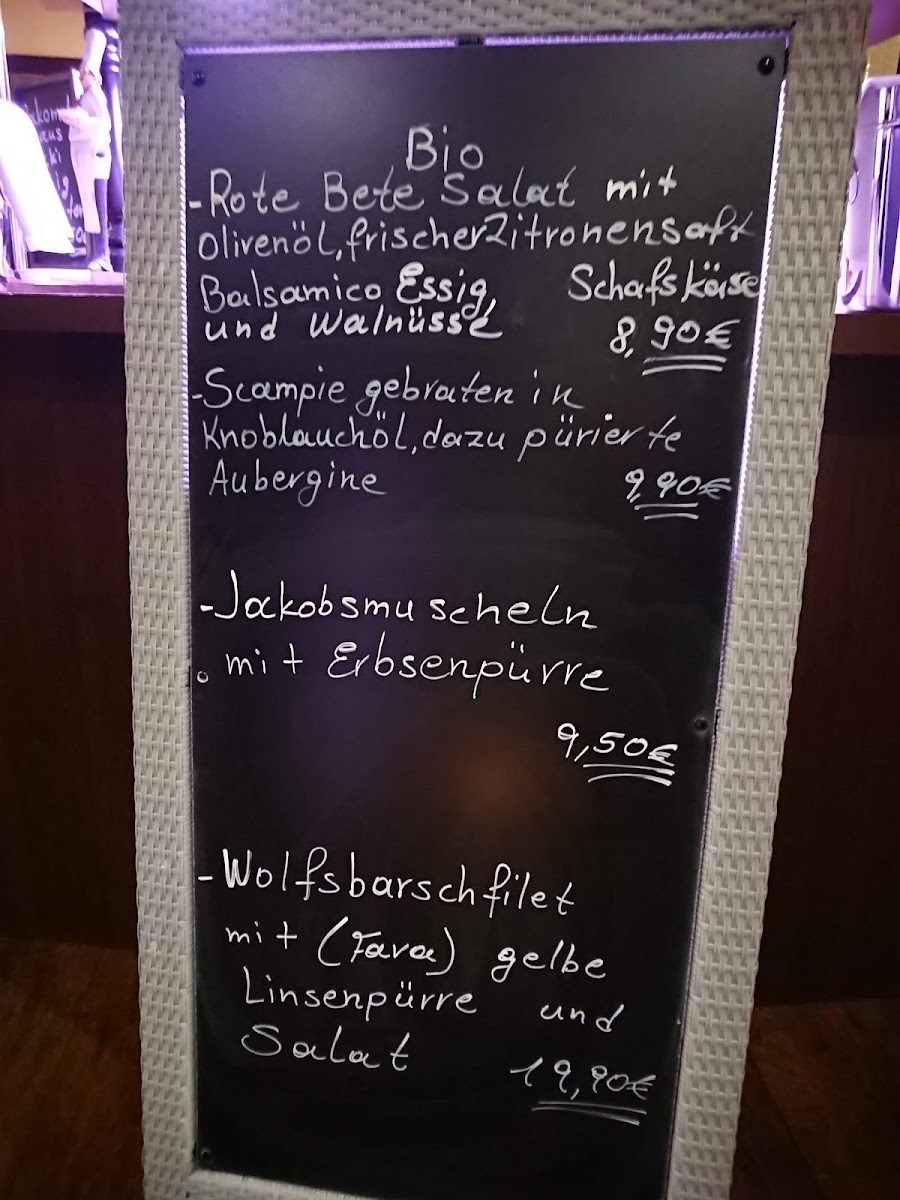 Bio
- Rote Bete Salat mit
Olivenöl, frischer Zitronensaft
Balsamico Essig, Schafskäse
und Walnüsse 8,90€
- Scampie gebraten in
Knoblauchöl, dazu pürierte
Aubergine 9,90€
- Jakobsmuscheln
mit Erbsenpürre
9,50€
- Wolfsbarschfilet
mit (Fava) gelbe
Linsenpürre und
Salat 19,90€